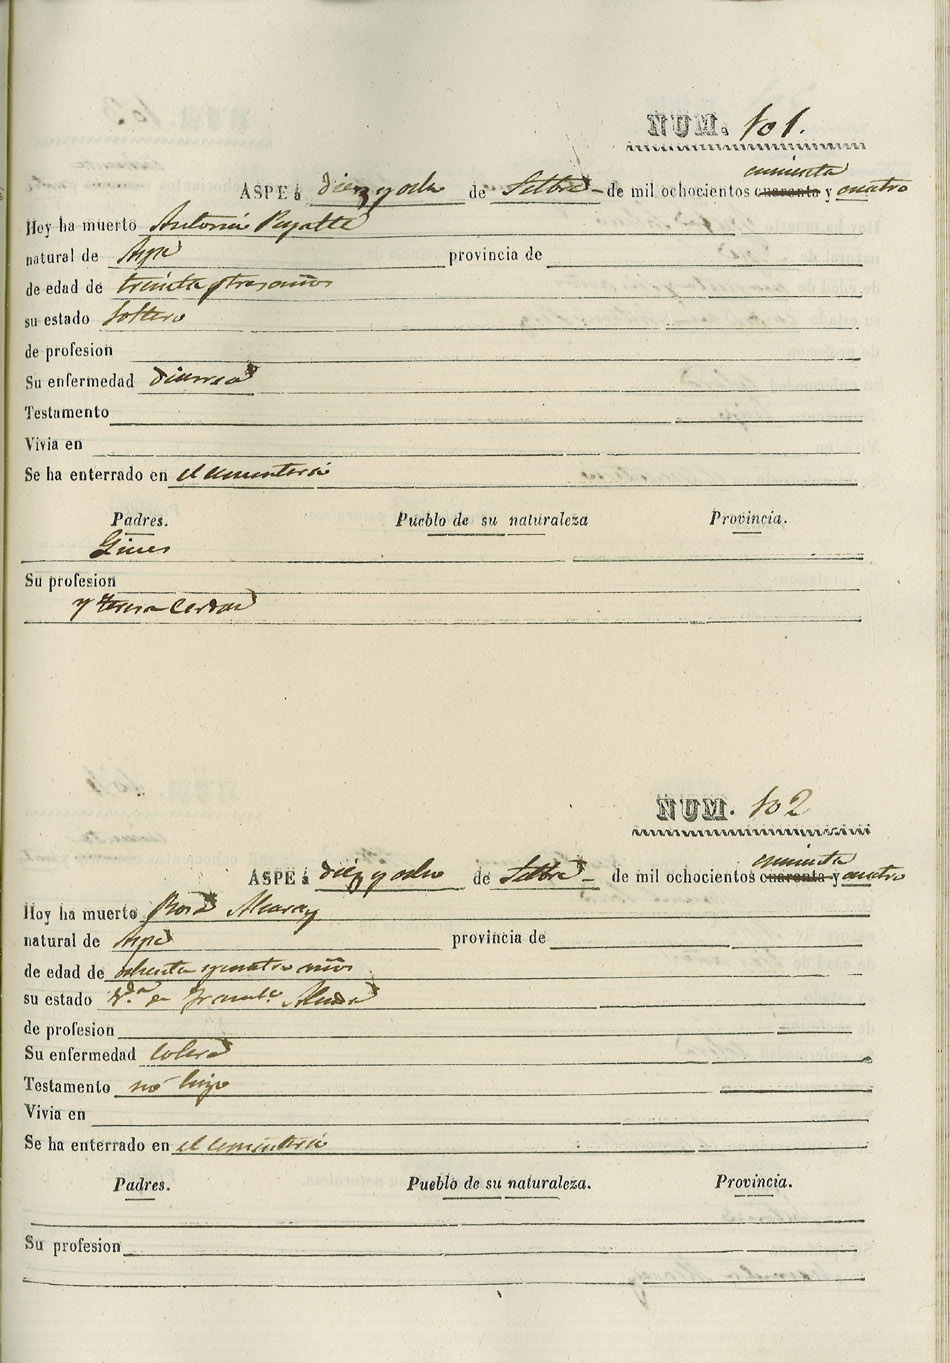 NUM. 101.
cincuenta
ASPE á diez y ocho de Setbre de mil ochocientos cuarenta y cuatro
Hoy ha muerto Antonio
natural de Aspe provincia de
de edad de treinta y tres años
su estado Soltero
de profesion
Su enfermedad diarrea
Testamento
Vivia en
Se ha enterrado en el cementerio
Padres. Pueblo de su naturaleza Provincia.
Gines
Su profesion
y Teresa
NUM. 102
cincuenta
ASPE á diez y ocho de Setbre de mil ochocientos cuarenta y cuatro
Hoy ha muerto Rosa
natural de Aspe provincia de
de edad de ochenta y cuatro años
su estado V.da de
de profesion
Su enfermedad Colera
Testamento no hizo
Vivia en
Se ha enterrado en el cementerio
Padres. Pueblo de su naturaleza. Provincia.
Su profesion